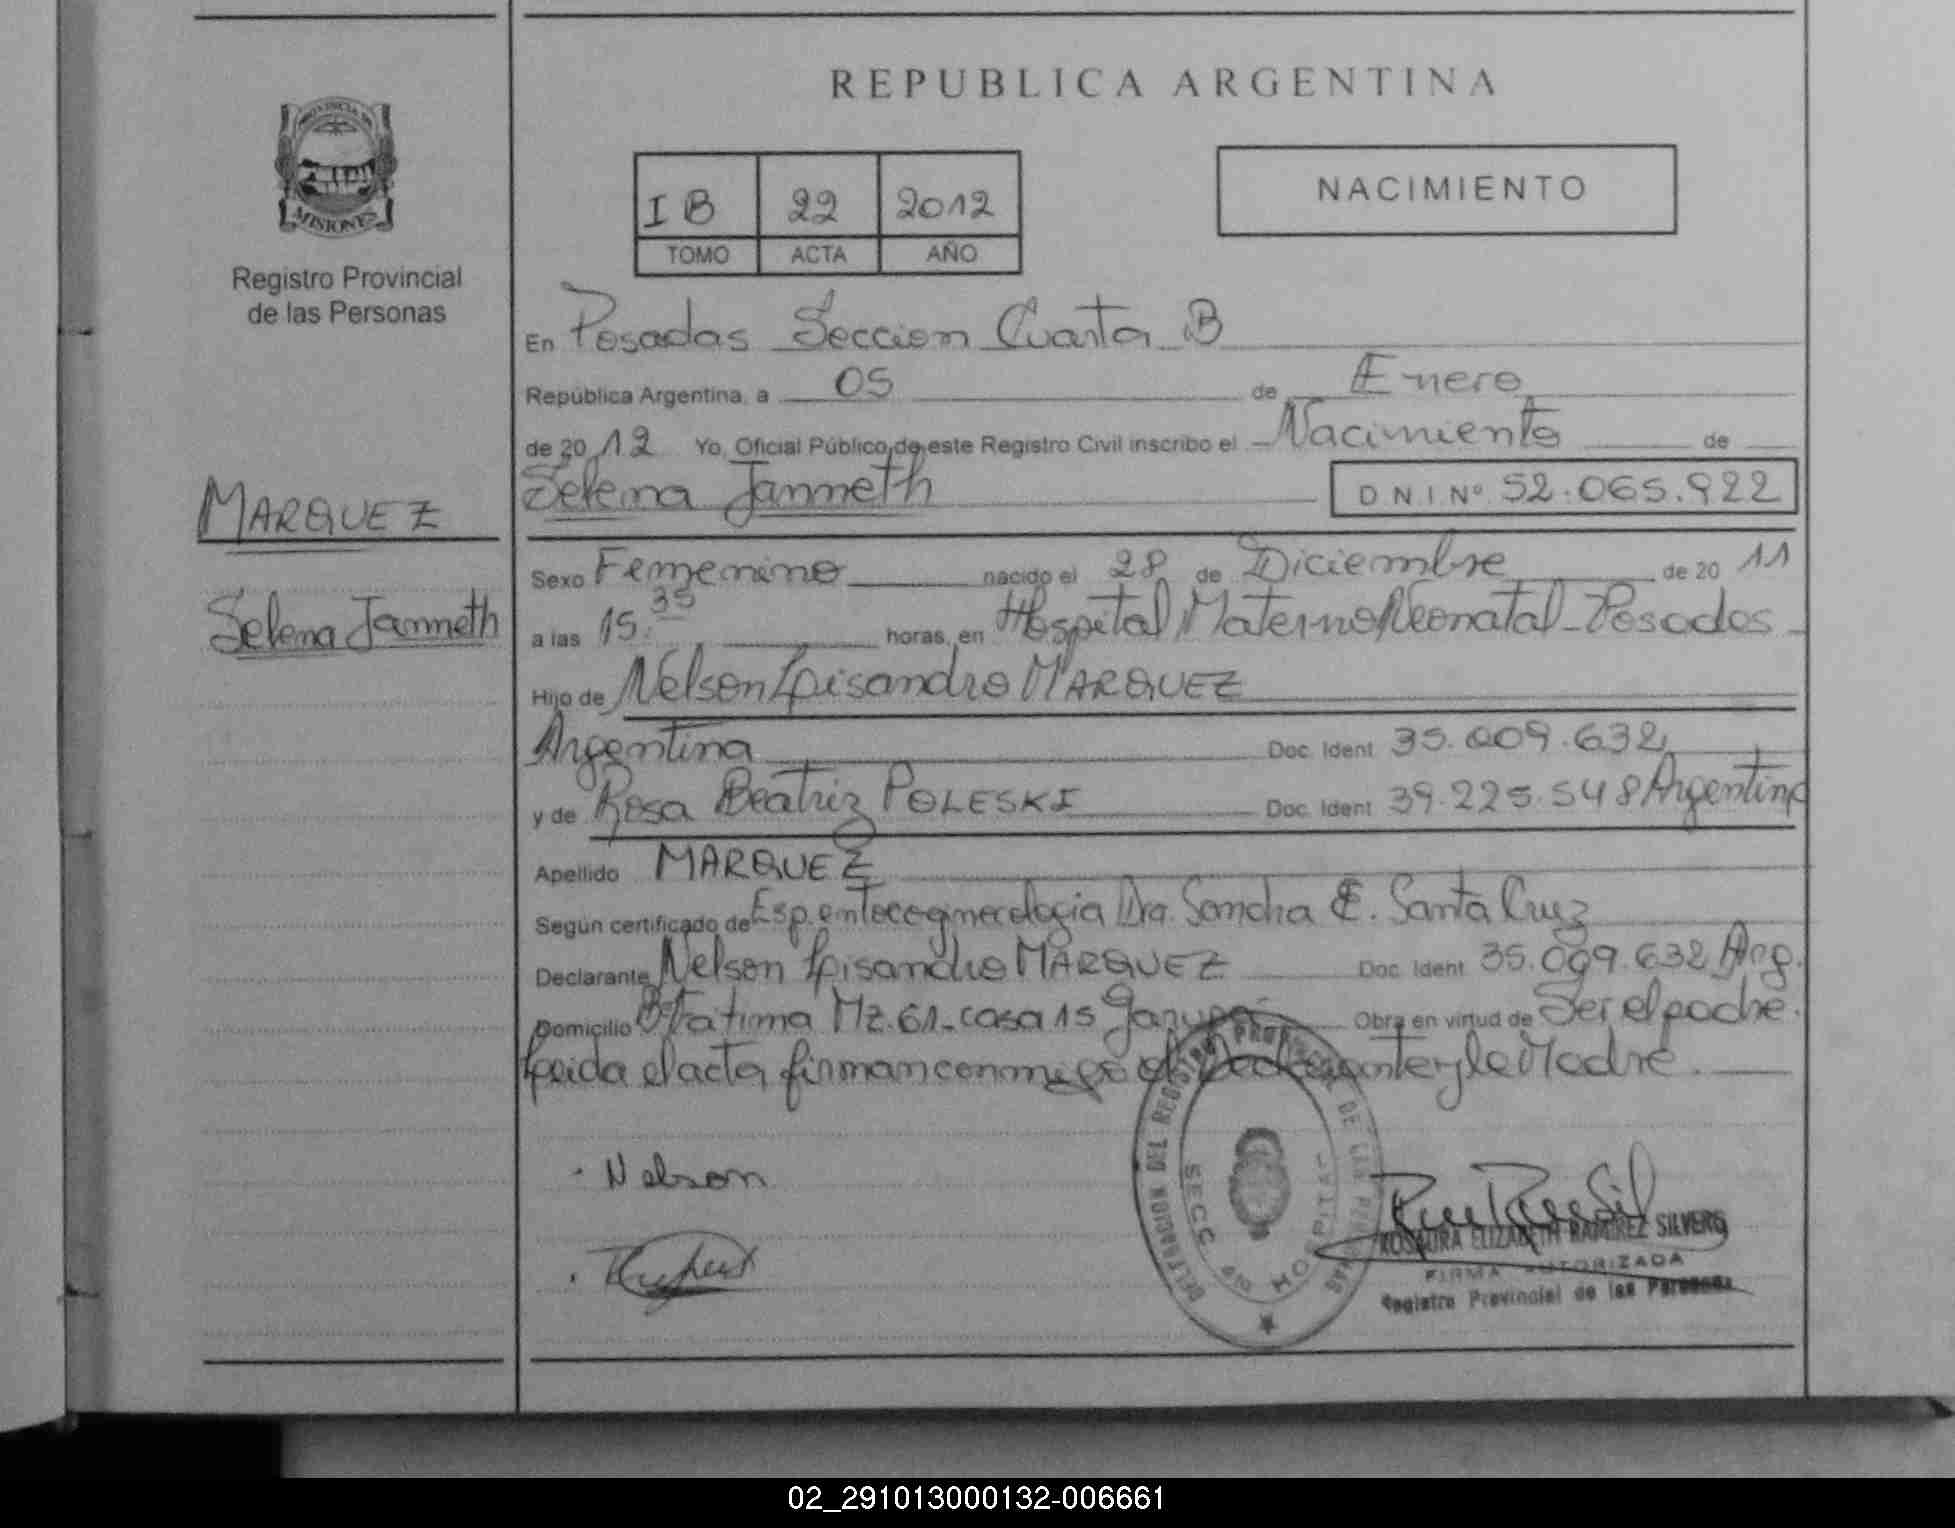 REPUBLICA ARGENTINA
PROVINCIA DE
MISIONES
Registro Provincial
de las Personas
I B 22 2012
TOMO ACTA AÑO
NACIMIENTO
En Posadas Seccion Cuarta B
República Argentina, a 05 de Enero
de 20 12 Yo, Oficial Público de este Registro Civil inscribo el Nacimiento de
Selena Janneth D.N.I.Nº 52.065.922
MARQUEZ
Selena Janneth
Sexo Femenino nacido el 28 de Diciembre de 20 11
a las 15:35 horas, en Hospital Materno Neonatal - Posadas
Hijo de Nelson Lisandro MARQUEZ
Argentina Doc. Ident. 35.009.632
y de Rosa Beatriz POLESKI Doc. Ident. 39.225.548 Argentina
Apellido MARQUEZ
Según certificado de Esp. en tocoginecologia Dra. Sancha E. Santa Cruz
Declarante Nelson Lisandro MARQUEZ Doc. Ident. 35.009.632 Arg.
Domicilio Bº Fatima Mz. 61 - casa 15 Garupá Obra en virtud de Ser el padre.
Leida el acta firman conmigo el Declarante y la Madre.
DELEGACION DEL REGISTRO PROVINCIAL DE LAS PERSONAS
SECC HOSPITAL
Nelson
ROSAURA ELIZABETH RAMIREZ SILVERO
FIRMA AUTORIZADA
Registro Provincial de las Personas
02_291013000132-006661